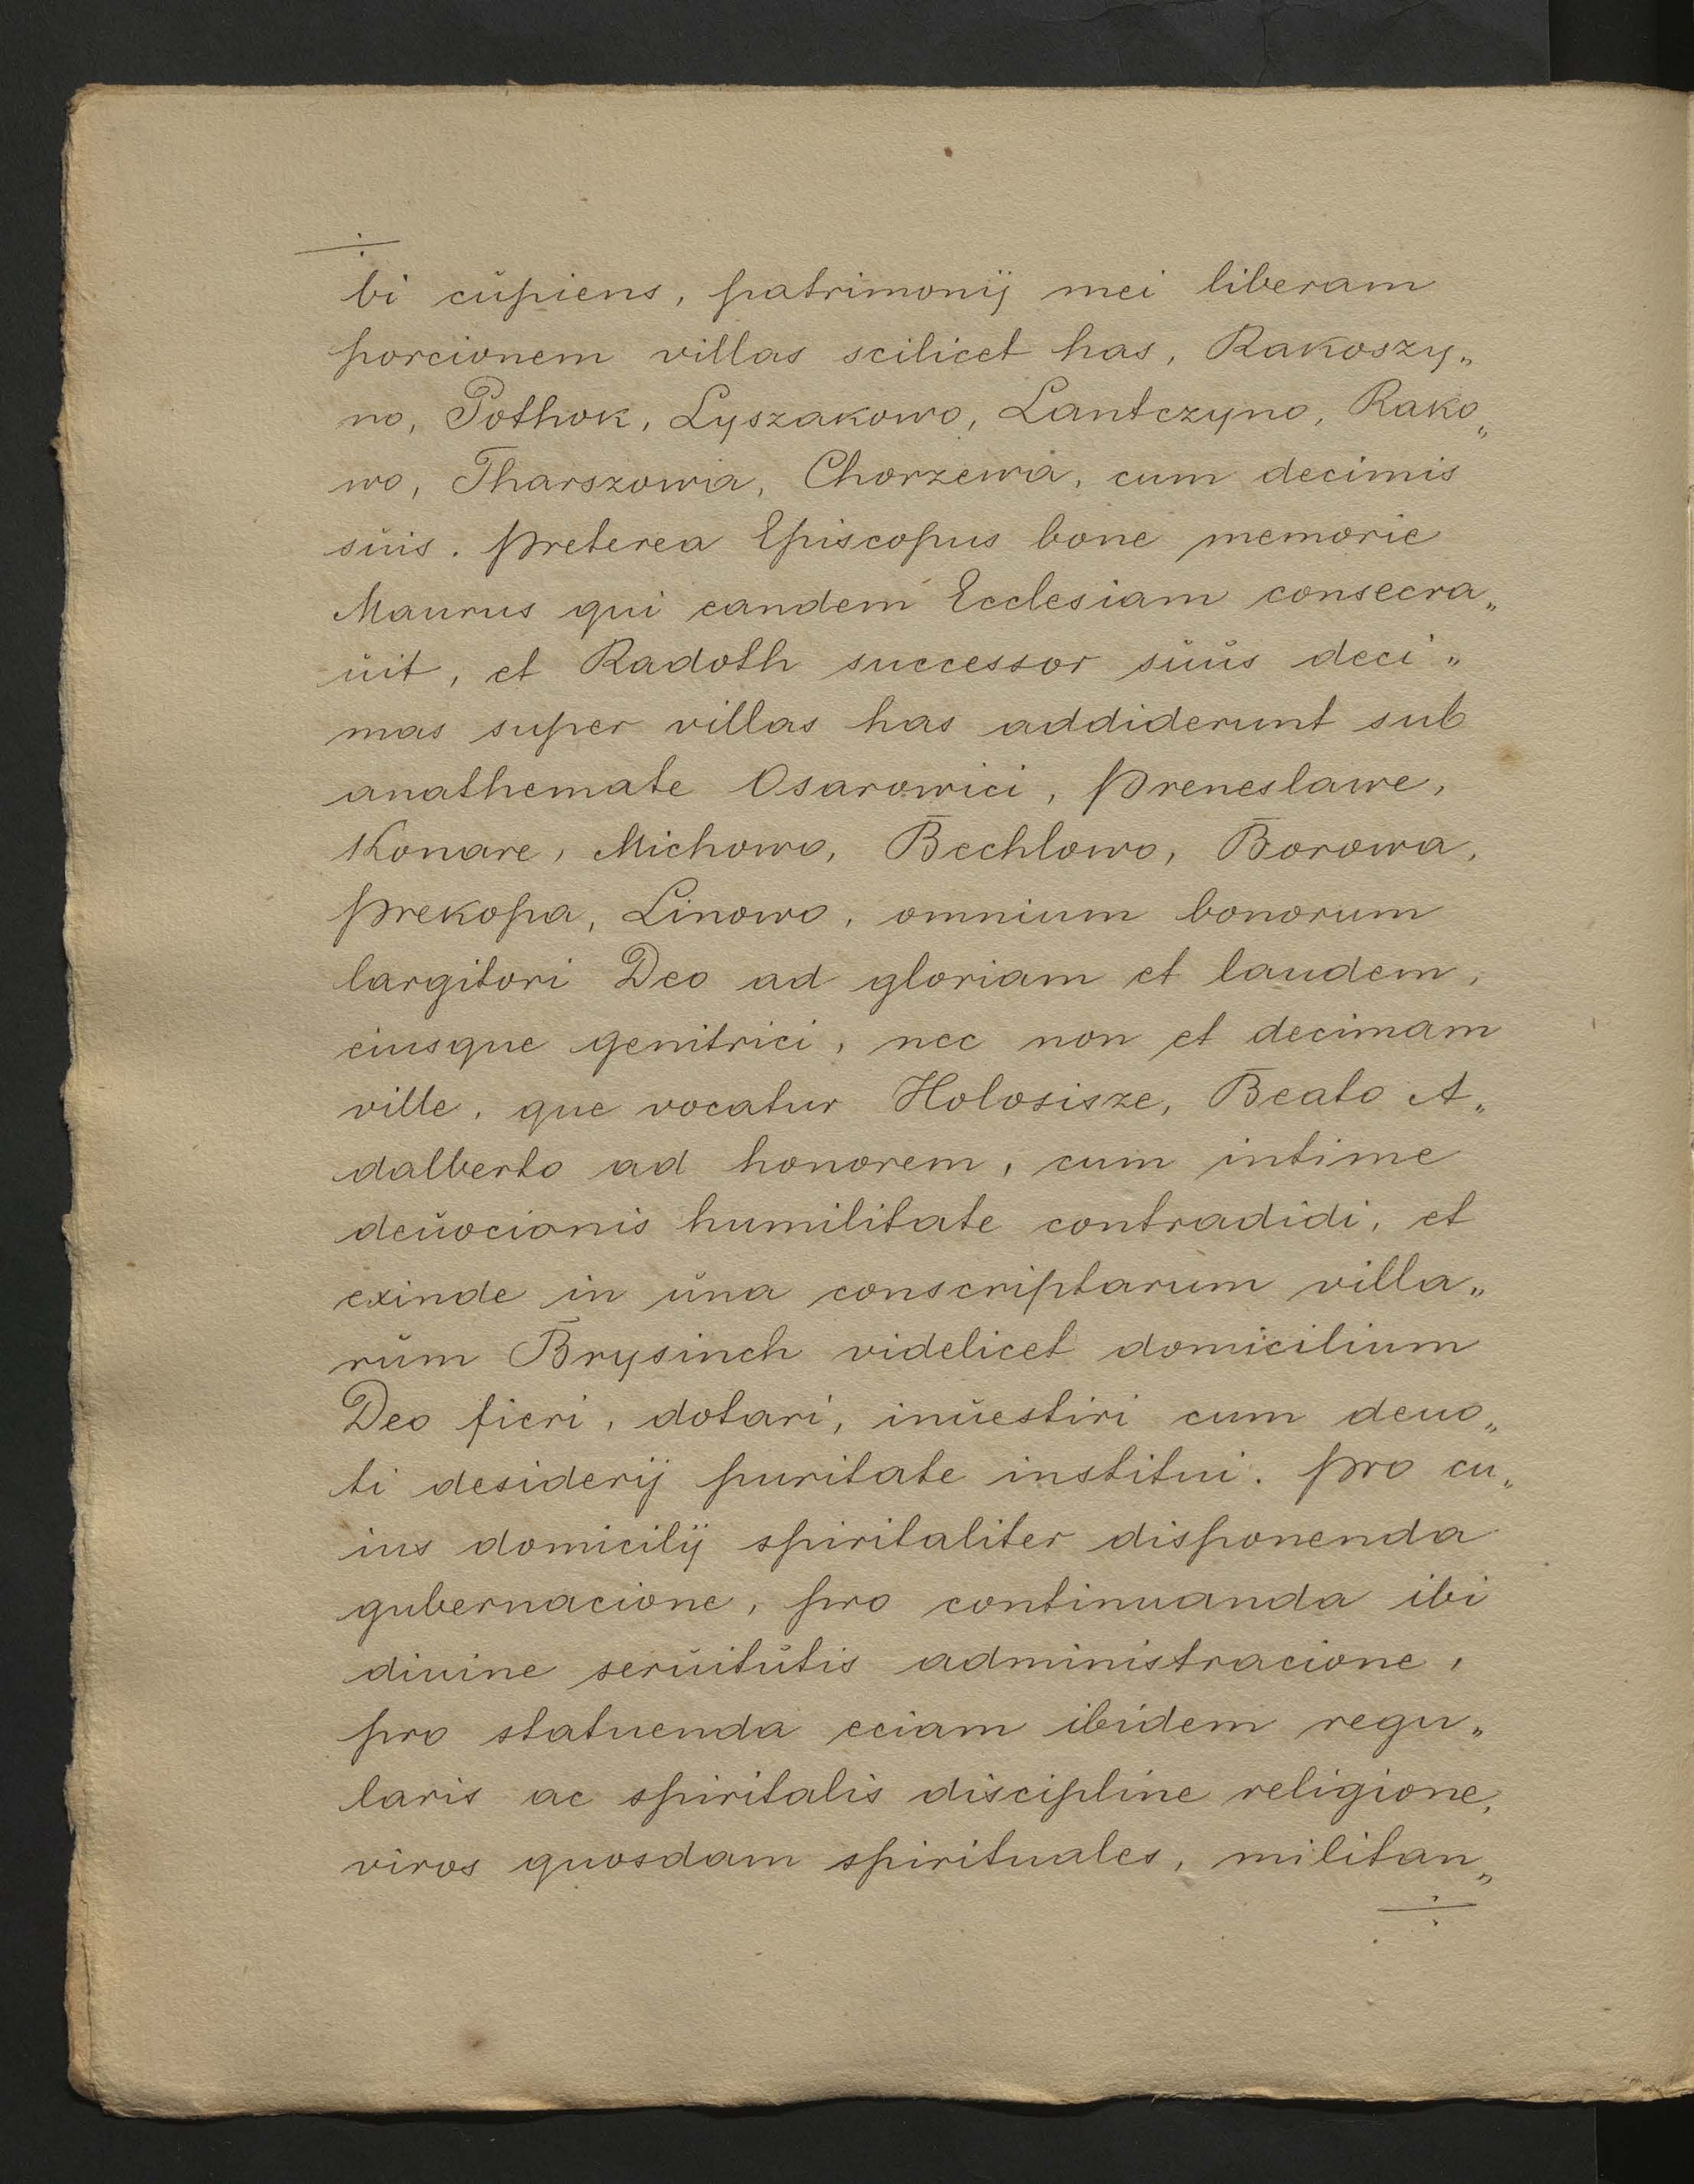 bi cŭpiens, patrimonij mei liberam
porcionem villas scilicet has, Rakoszy„
no, Pothok, Lyszakowo, Lantczyno, Rako„
wo, Tharszowia, Chorzewa, cum decimis
sŭis. Preterea Episcopus bone memorie
Maurus qui eandem Ecclesiam consecra„
ŭit, et Radoth successor sŭŭs deci„
mas super villas has addiderunt sub
anathemate Osarowici, Preneslawe,
Konare, Michowo, Bechlowo, Borowa,
Prekopa, Linowo, omnium bonorum
largitori Deo ad gloriam et laudem,
eiusque genitrici, nec non et decimam
ville, que vocatur Holosisze, Beato A„
dalberto ad honorem, cum intime
deŭocionis humilitate contradidi, et
exinde in ŭna conscriptarum villa„
rŭm Brysinch videlicet domicilium
Deo fieri, dotari, inŭestiri cum deuo„
ti desiderij puritate institui. Pro cu„
ius domicilij spiritaliter disponenda
gubernacione, pro continuanda ibi
diuine serŭitŭtis administracione,
pro statuenda eciam ibidem regu„
laris ac spiritalis discipline religione,
viros quosdam spirituales, militan„